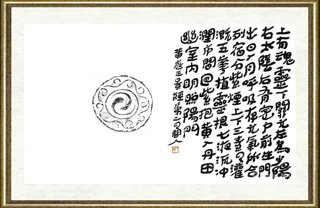 上有魂靈下關元左為少陽
右太陰后有密戶前生門
出日入月呼吸存元氣所合
列宿分紫煙上下三素雲灌
溉五華植靈根七液流沖
間回紫抱黃入丹田
幽室內明照陽門
黃庭經第二